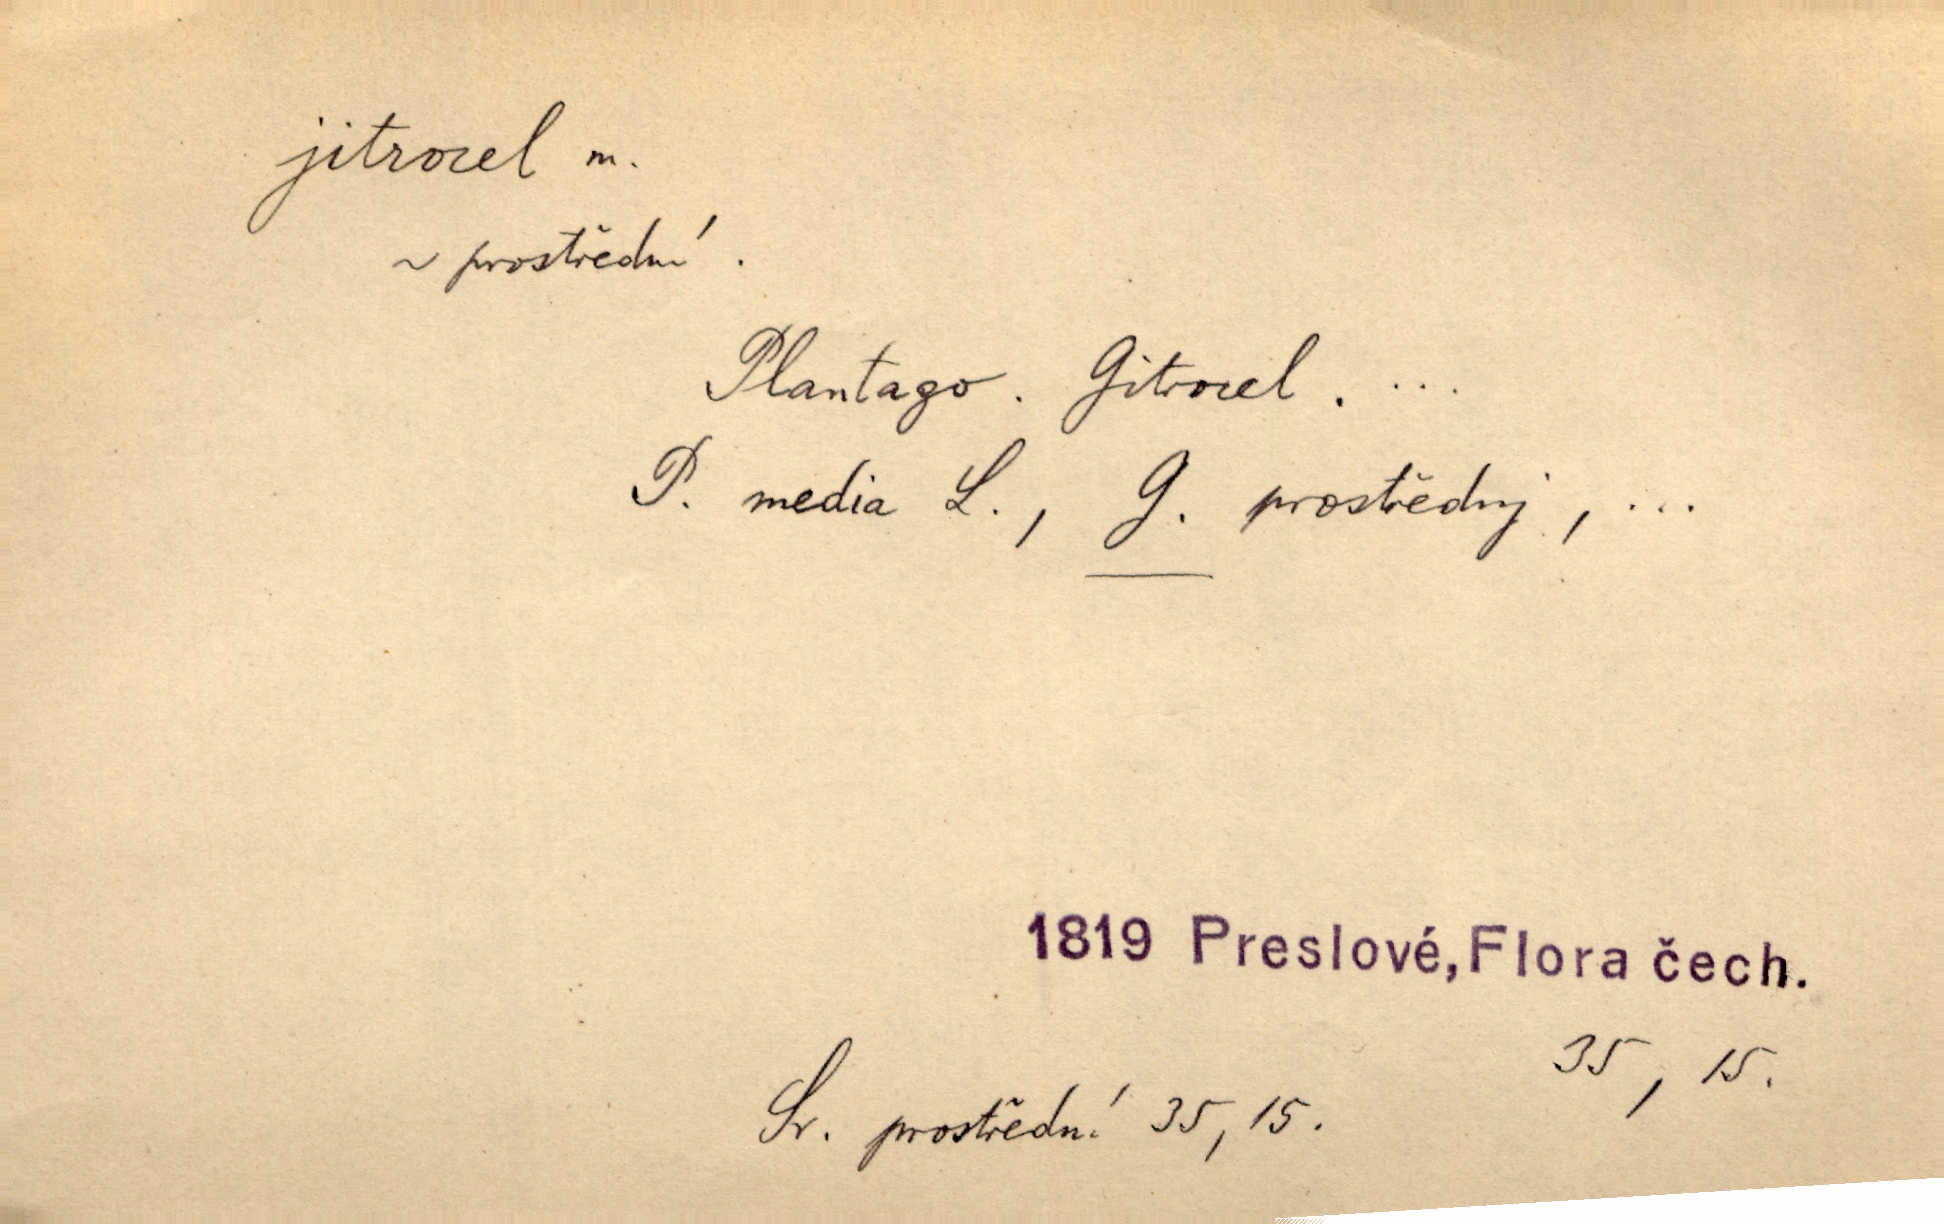 jitrocel m.
~ prostřední.
Plantago. Gitrocel. ...
P. media L., G. prostřednj, ...
1819 Preslové, Flora čech.
35, 15.
Sr. prostřední 35, 15.